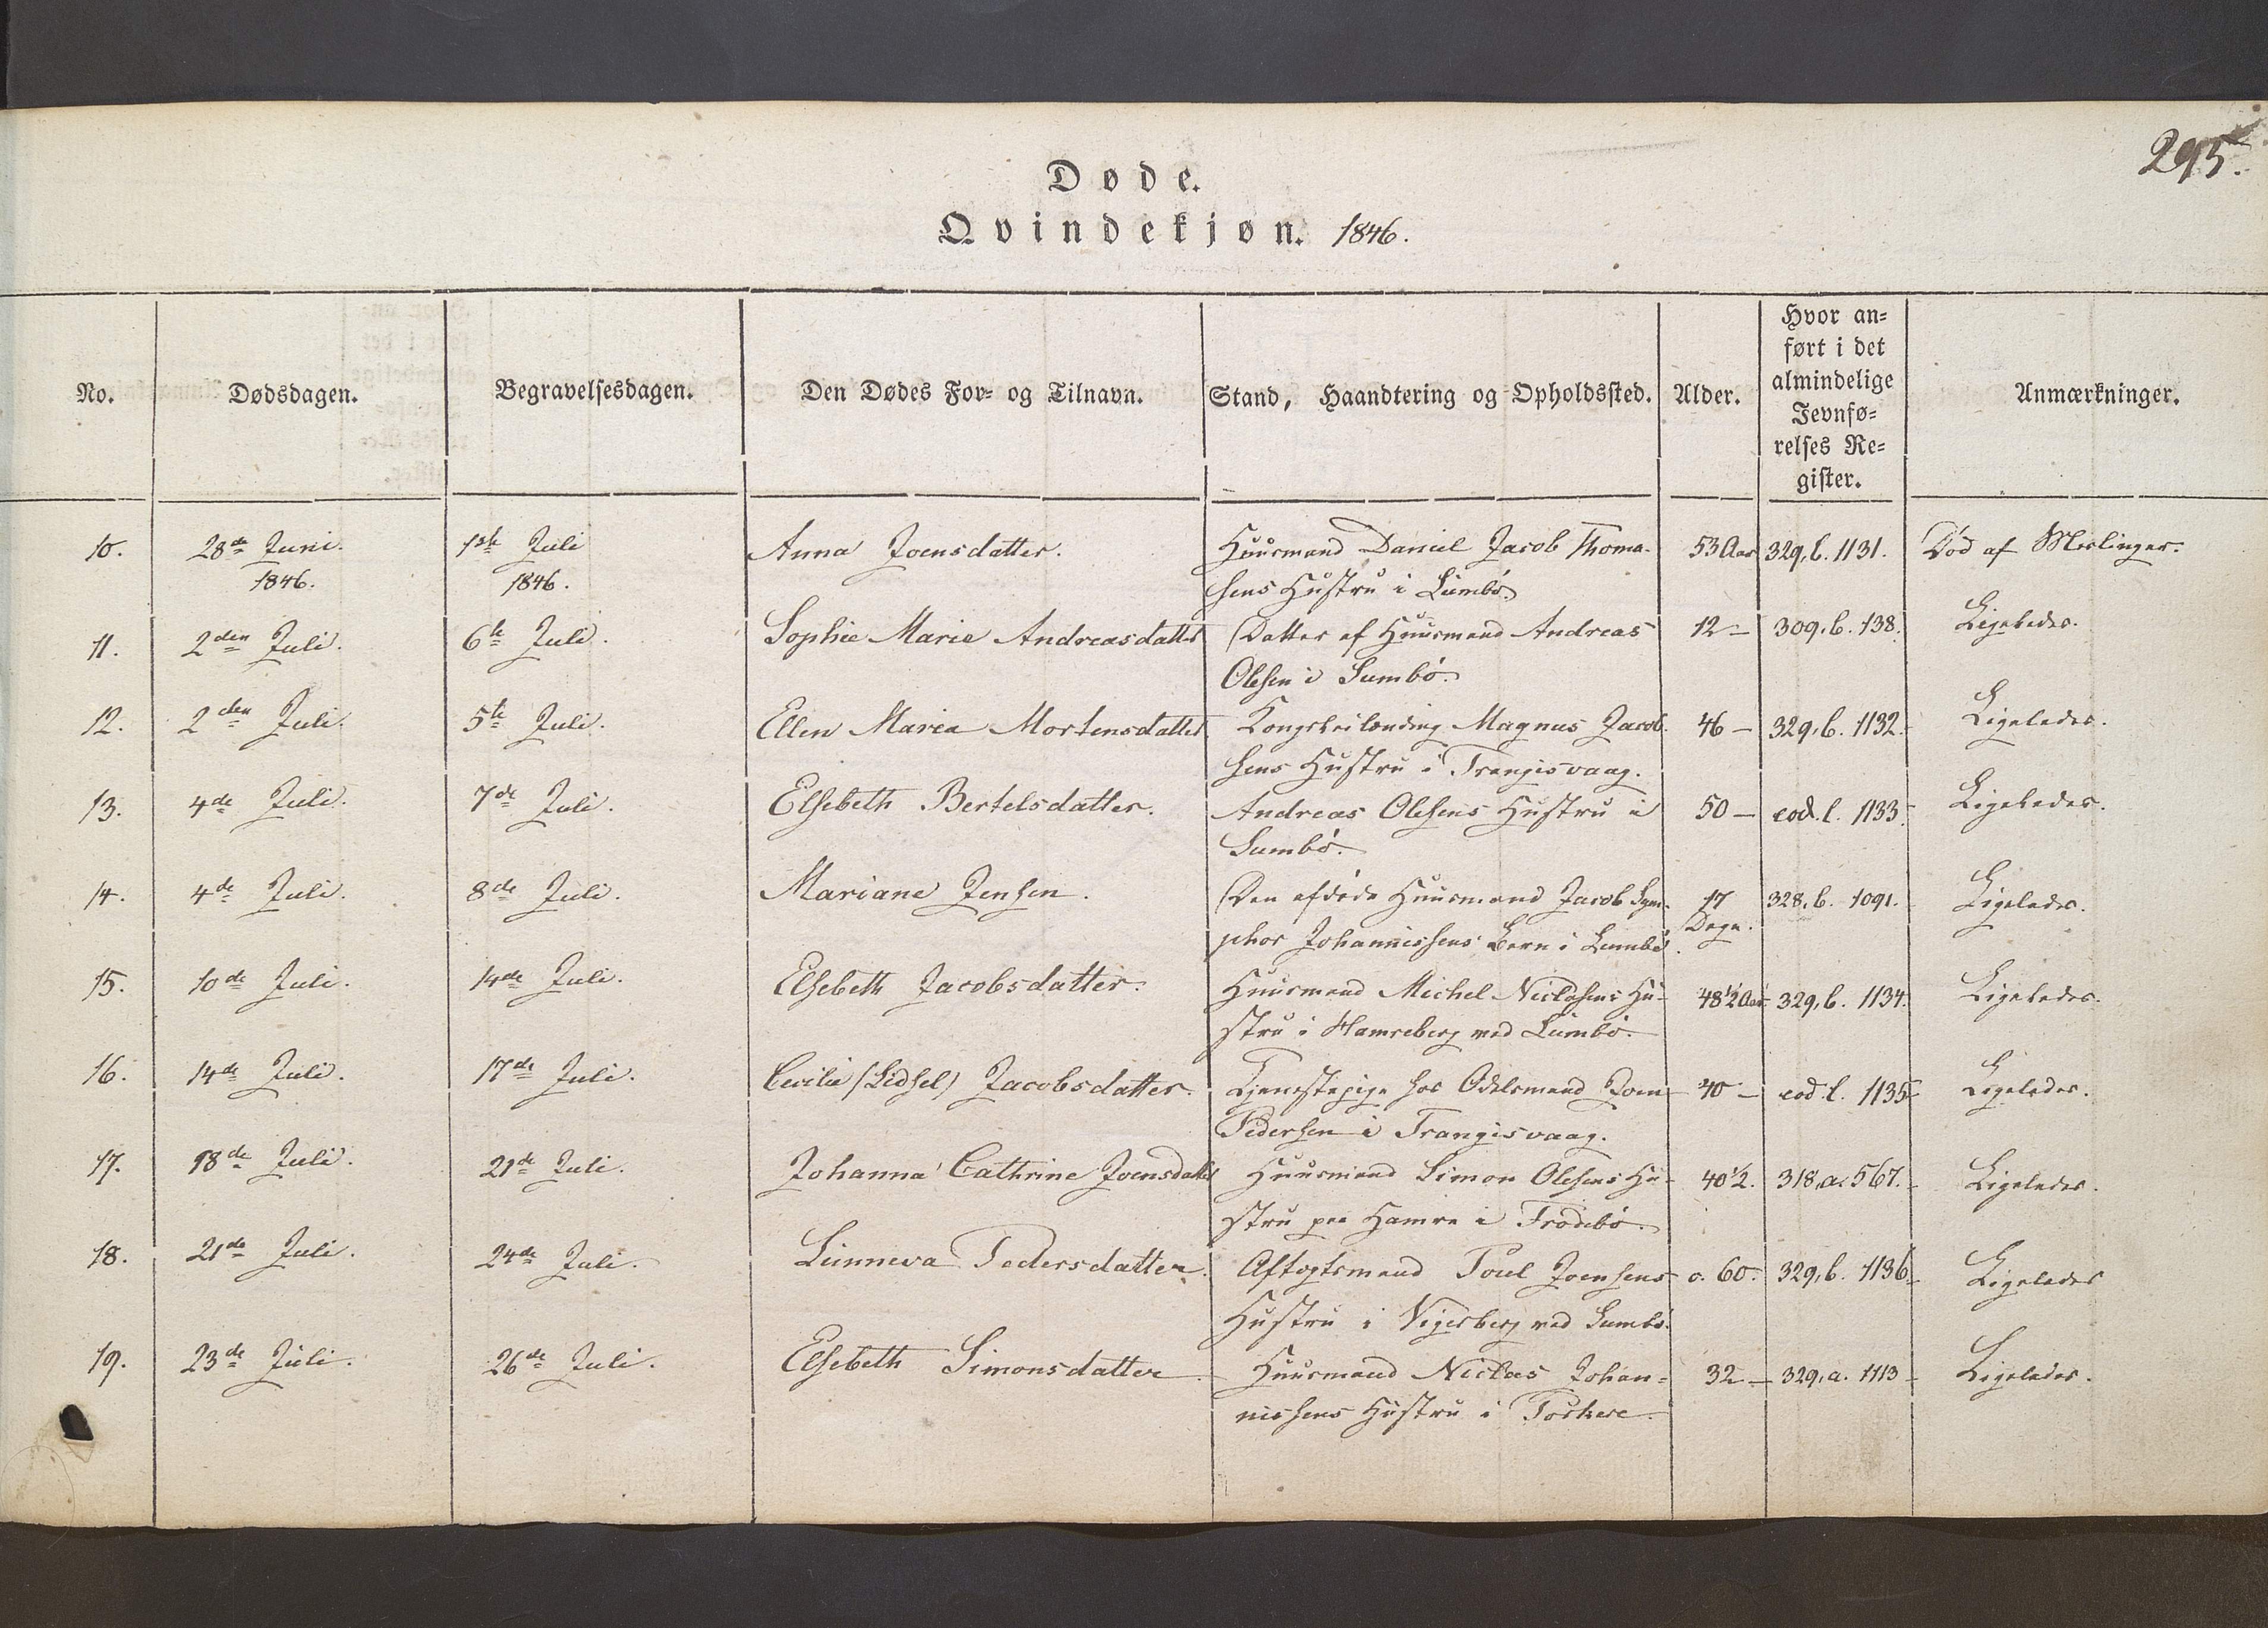 295.
Døde.
Qvindekjøn. 1846.
No. Dødsdagen. Begravelsesdagen. Den Dødes For- og Tilnavn. Stand, Haandtering og Opholdssted. Alder. Hvor an=
ført i det
almindelige
Jevnfø=
relses Re=
gister. Anmærkninger.
10. 28de Juni. 1ste Juli Anna Joensdatter. Huusmand Daniel Jacob Thoma- 53 Aar 329, b. 1131. Død af Meslinger.
1846. 1846. sens Hustru i Sumbø.
11. 2den Juli. 6te Juli. Sophie Marie Andreasdatter Datter af Huusmand Andreas 12 - 309. b. 138. Ligeledes.
Olesen i Sumbø.
12. 2den Juli. 5te Juli. Ellen Maria Mortensdatter Kongsleilending Magnus Jacob- 46 - 329, b. 1132. Ligeledes.
sens Hustru i Trangisvaag.
13. 4de Juli. 7de Juli. Elsebeth Bertelsdatter. Andreas Olesens Hustru i 50 - eod. l. 1133. Ligeledes.
Sumbø.
14. 4de Juli. 8de Juli. Mariane Jensen. Den afdøde Huusmand Jacob Sym- 17 328, b. 1091. Ligeledes.
phor Johannissens Barn i Sumbø. Dage.
15. 10de Juli. 14de Juli. Elsebeth Jacobsdatter. Huusmand Michel Niclasens Hu- 48 1/2 Aar 329, b. 1134. Ligeledes.
stru i Hamreberg ved Sumbø.
16. 14de Juli. 17de Juli. Cecilie (Sidsel) Jacobsdatter. Tjenestepige hos Odelsmand Joen 40 - eod. l. 1135 Ligeledes.
Pedersen i Trangisvaag.
17. 18de Juli. 21de Juli. Johanna Cathrine Joensdatter Huusmand Simon Olesens Hu- 40 1/2. 318, a. 567. Ligeledes.
stru paa Hamre i Frodebø.
18. 21de Juli. 24de Juli. Sunneva Pedersdatter. Aftægtsmand Poul Joensens o. 60. 329, b. 1136 Ligeledes
Hustru i Vigerberg ved Sumbø.
19. 23de Juli. 26de Juli. Elsebeth Simonsdatter. Huusmand Niclas Johan= 32 - 329, a. 1113 Ligeledes.
nissens Hustru i Porkere.